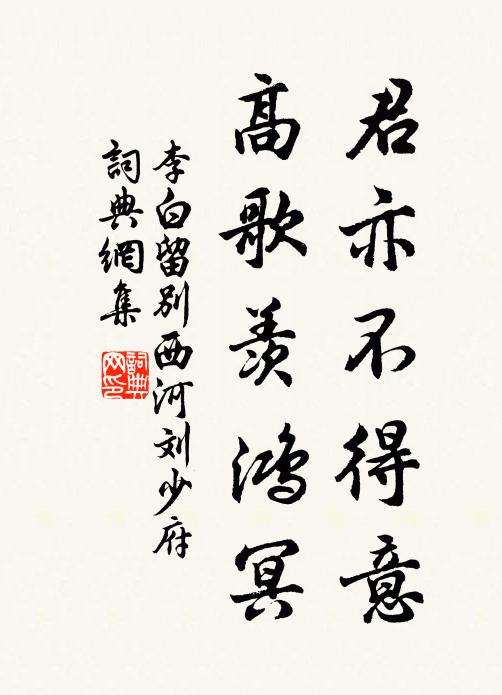 君亦不得意
高歌羨鴻冥
李白留別西河刘少府
詞典網集
詞典网印